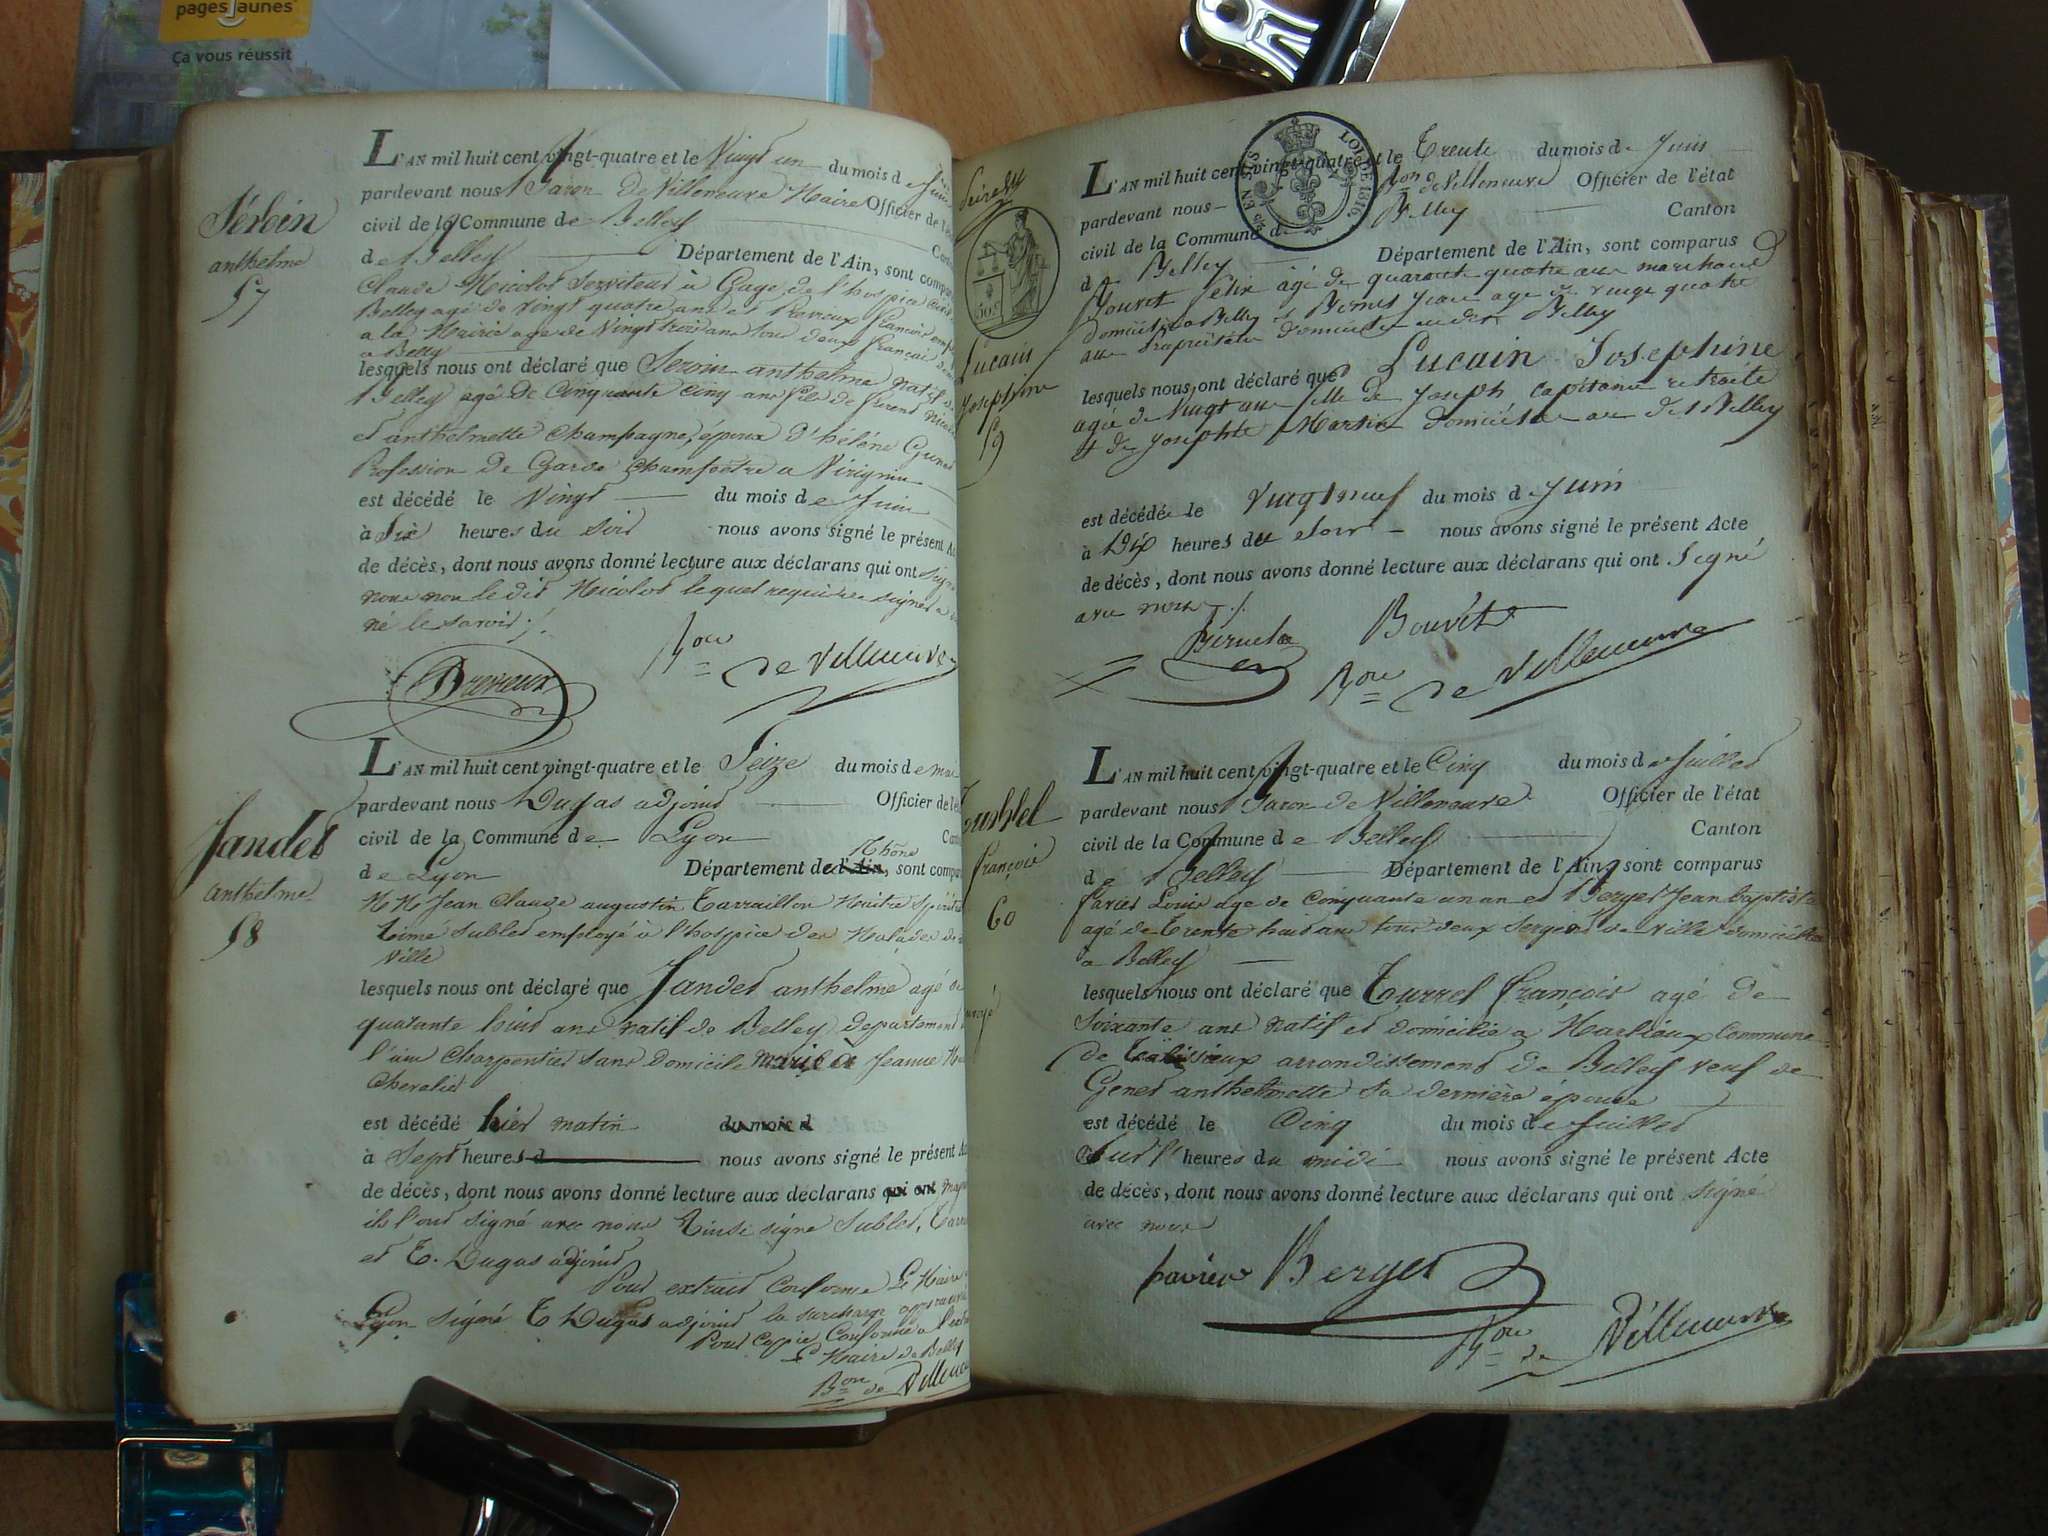 pagesjaunes
Ça vous réussit
Serbin
anthelme
57
L'AN mil huit cent vingt-quatre et le Vingt un du mois de Juin
pardevant nous Baron De Villeneuve Maire Officier de l'é
civil de la Commune de Belley
de Belley Département de l'Ain, sont compar
Claude Nicolot Serviteur à Gage de l'hospice
Belley agé de Vingt quatre ans et Prevreux françois
a la Mairie agé de Vingt trois ans tous deux français
a Belley
lesquels nous ont déclaré que Serbin anthelme natif de
Belley agé de Cinquante cinq ans fils de
et anthelmette Champagne, époux d'hélène
Profession de Garde champêtre a Virignin
est décédé le Vingt du mois de Juin
à Six heures du soir nous avons signé le présent Ac
de décès, dont nous avons donné lecture aux déclarans qui ont signé
nous non le dit Nicolot lequel requis de signer a
né le savoir
Bon de Villeneuve
Jandet
anthelme
58
L'AN mil huit cent vingt-quatre et le Seize du mois de mai
pardevant nous Dugas adjoint Officier de l'é
civil de la Commune de Lyon
Rhône
de Lyon Département de l'Ain, sont compar
M M Jean Claude augustin Tarraillon Maitre
Sublet employé à l'hospice des Malades de
Ville
lesquels nous ont déclaré que Jandet anthelme agé de
quarante ans natif de Belley département
l'ain Charpentier sans domicile marié a Jeanne
Chevalier
est décédé hier matin du mois d
à Sept heures d nous avons signé le présent Ac
de décès, dont nous avons donné lecture aux déclarans qui ont
ils l'ont signé avec nous signé Sublet,
et T. Dugas adjoint
Pour extrait Conforme Le Maire
Lyon signé T Dugas adjoint la surcharge approuvée
Pour Coppie Conforme a l'
Le Maire de Belley
Bon de Villeneuve
Lucain
Josephine
59
50 C
EN SUS
LOI DE 1816
L'AN mil huit cent vingt-quatre et le Trente du mois de Juin
pardevant nous Bon de Villeneuve Officier de l'état
civil de la Commune de Belley Canton
de Belley Département de l'Ain, sont comparus
Bouvet Felix âgé de quarante quatre ans marchand
domicilié a Belley et Jean age de vingt quatre
ans Propriétaire domicilié Belley
lesquels nous ont déclaré que Lucain Josephine
agée de Vingt ans fille de Joseph Capitaine retraité
et de Josephte Martin domiciliée au dit Belley
est décédée le vingt neuf du mois de Juin
à Dix heures du soir nous avons signé le présent Acte
de décès, dont nous avons donné lecture aux déclarans qui ont Signé
avec nous
Bouvet
Bon de Villeneuve
françois
60
L'AN mil huit cent vingt-quatre et le Cinq du mois de Juillet
pardevant nous Baron de Villeneuve Officier de l'état
civil de la Commune de Belley Canton
de Belley Département de l'Ain, sont comparus
favier Louis age de Cinquante un an et Berger Jean baptiste
agé de Trente huit ans tous deux Sergent de ville domiciliés
a Belley
lesquels nous ont déclaré que Tourrel françois agé de
Soixante ans natif et domicilié a Commune
de arrondissement de Belley veuf de
Genet anthelmette Sa dernière épouse
est décédé le Cinq du mois de Juillet
Sur l' heures du midi nous avons signé le présent Acte
de décès, dont nous avons donné lecture aux déclarans qui ont signé
avec nous
favier Berger
Bon de Villeneuve